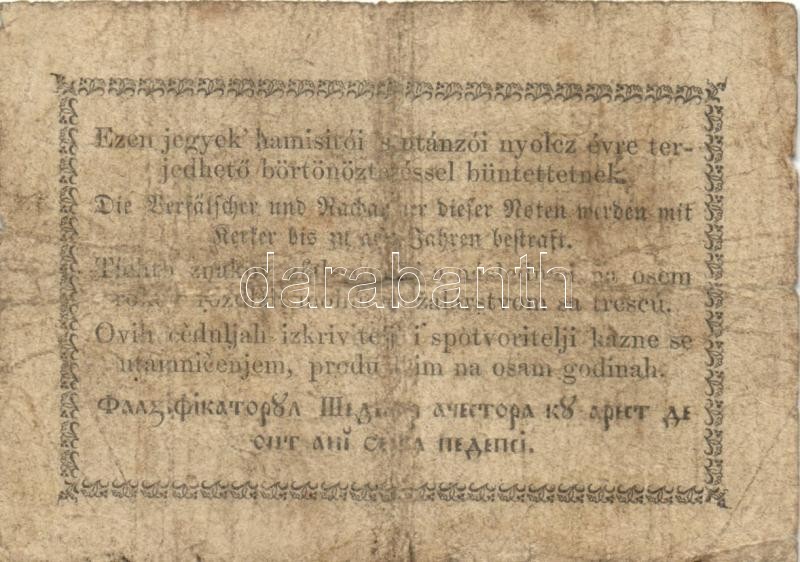 Ezen jegyek' hamisitói s utánzói nyolcz évre ter-
jedhető börtönöztetéssel büntettetnek.
Die Verfälscher und Nachahmer dieser Noten werden mit
Kerker bis zu acht Jahren bestraft.
Tíchto na osem
zalárstvom za trescú.
Ovih cèduljah izkrivitelji i spòtvoritelji kazne se
utamničenjem, produ na osam godinah.
ачестора кꙋ арест де
опт анї педепсі.
darabanth